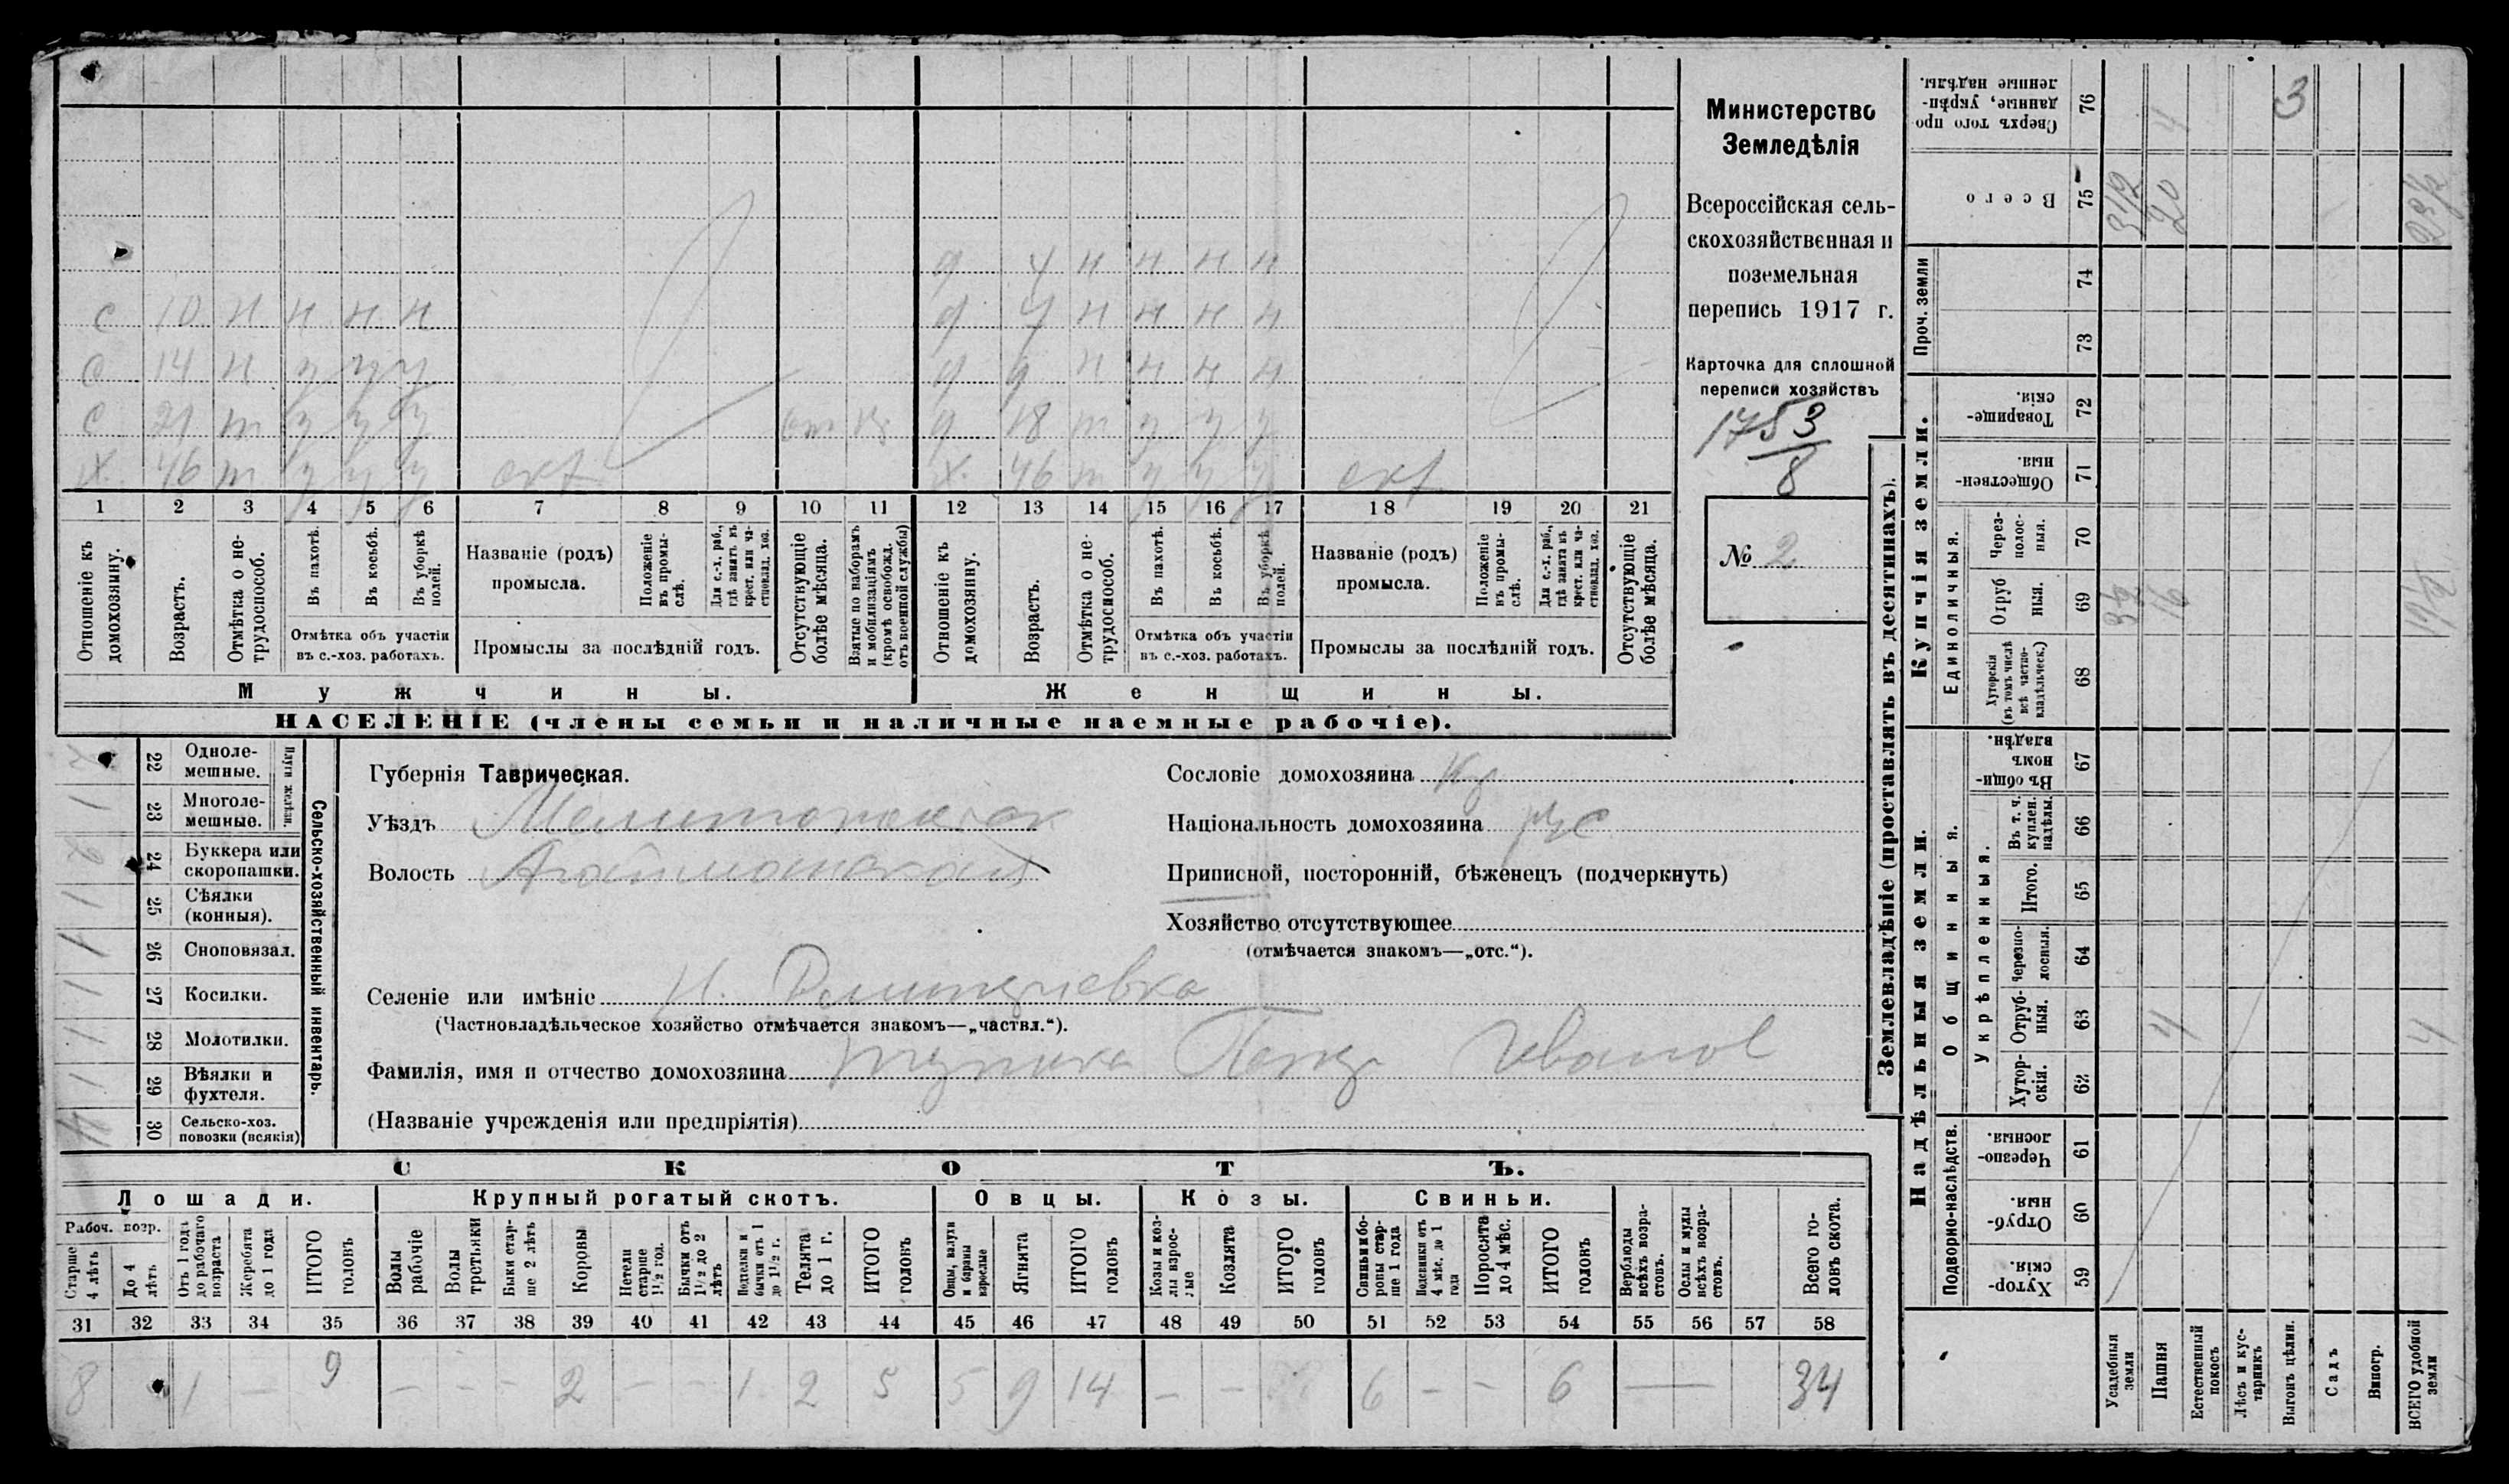 Министерство
Земледѣлія
Всероссійская сель-
скохозяйственная и
поземельная
перепись 1917 г.
Карточка для сплошной
переписи хозяйствъ
1753
8
№ 2
д 4 н н н н
с 10 н н н н
д 7 н н н н
с 14 н у у у
д 9 н н н н
с 21 т у у у
д 18 т у у у
х 46 т у у у
х 46 т у у у
1 2 3 4 5 6 7 8 9 10 11 12 13 14 15 16 17 18 19 20 21
Отношеніе къ домохозяину.
Возрастъ.
Отмѣтка о не-трудоспособ.
Въ пахотѣ.
Въ косьбѣ.
Въ уборкѣ полей.
Отмѣтка объ участіи
въ с.-хоз. работахъ.
Названіе (родъ)
промысла.
Положеніе въ промы-слѣ.
Для с.-х. раб., гдѣ занятъ въ крест. или ча-стновлад. хоз.
Промыслы за послѣдній годъ.
Отсутствующіе болѣе мѣсяца.
Взятые по наборамъ и мобилизаціямъ (кромѣ освобожд. отъ военной службы)
Отношеніе къ домохозяину.
Возрастъ.
Отмѣтка о не-трудоспособ.
Въ пахотѣ.
Въ косьбѣ.
Въ уборкѣ полей.
Отмѣтка объ участіи
въ с.-хоз. работахъ.
Названіе (родъ)
промысла.
Положеніе въ промы-слѣ.
Для с.-х. раб., гдѣ занята въ крест. или ча-стновлад. хоз.
Промыслы за послѣдній годъ.
Отсутствующіе болѣе мѣсяца.
Мужчины.
Женщины.
НАСЕЛЕНІЕ (члены семьи и наличные наемные рабочіе).
Сельско-хозяйственный инвентарь.
Плуги желѣзн.
22 Одноле-
мешные.
1 23 Многоле-
мешные.
2 24 Буккера или
скоропашки.
1 25 Сѣялки
(конныя).
1 26 Сноповязал.
1 27 Косилки.
1 28 Молотилки.
1 29 Вѣялки и
фухтеля.
4 30 Сельско-хоз.
повозки (всякія)
Губернія Таврическая.
Уѣздъ Мелитопольскій
Волость
Сословіе домохозяина Кр
Національность домохозяина рус
Приписной, посторонній, бѣженецъ (подчеркнуть)
Хозяйство отсутствующее
(отмѣчается знакомъ—„отс.“).
Селеніе или имѣніе Н. Дмитріевка
(Частновладѣльческое хозяйство отмѣчается знакомъ—„частвл.“).
Фамилія, имя и отчество домохозяина Иванов
(Названіе учрежденія или предпріятія)
СКОТЪ.
Лошади.
Крупный рогатый скотъ.
Овцы.
Козы.
Свиньи.
Рабоч. возр.
Старше 4 лѣтъ
До 4 лѣтъ
Отъ 1 года до рабочаго возраста
Жеребята до 1 года
ИТОГО головъ
Волы рабочіе
Волы третьяки
Быки стар-ше 2 лѣтъ
Коровы
Нетели старше 1½ год.
Бычки отъ 1½ до 2 лѣтъ
Подтелки и бычки отъ 1 до 1½ г.
Телята до 1 г.
ИТОГО головъ
Овцы, валухи и бараны взрослые
Ягнята
ИТОГО головъ
Козы и коз-лы взрос-лые
Козлята
ИТОГО головъ
Свиньи и бо-ровы стар-ше 1 года
Подсвинки отъ 4 мѣс. до 1 года
Поросята до 4 мѣс.
ИТОГО головъ
Верблюды всѣхъ возра-стовъ.
Ослы и мулы всѣхъ возра-стовъ.
Всего го-ловъ скота.
31 32 33 34 35 36 37 38 39 40 41 42 43 44 45 46 47 48 49 50 51 52 53 54 55 56 57 58
8 1 — 9 — — — 2 — — 1 2 5 5 9 14 — — 6 — — 6 — 34
Землевладѣніе (проставлять въ десятинахъ).
Сверхъ того про-данные, укрѣп-ленные надѣлы. 76 4 3
Всего 75 3½ 20
Проч. земли
74
73
Купчія земли.
Товарище-скія. 72
Обществен-ныя. 71
Единоличныя.
Через-полос-ныя. 70
Отруб-ныя. 69 16
Хуторскія (въ томъ числѣ всѣ частно-владѣльческ.) 68
Надѣльныя земли.
Общинныя.
Въ общи-номъ владѣн. 67
Укрѣпленныя.
Въ т. ч. куплен. надѣлы. 66
Итого. 65
Черезпо-лосныя. 64
Отруб-ныя. 63 4 4
Хутор-скія. 62
Подворно-наслѣдств.
Черезпо-лосныя. 61
Отруб-ныя. 60
Хутор-скія. 59
Усадебныя земли
Пашня
Естественный покосъ
Лѣсъ и кус-тарникъ
Выгонъ цѣлин.
Садъ
Виногр.
ВСЕГО удобной земли